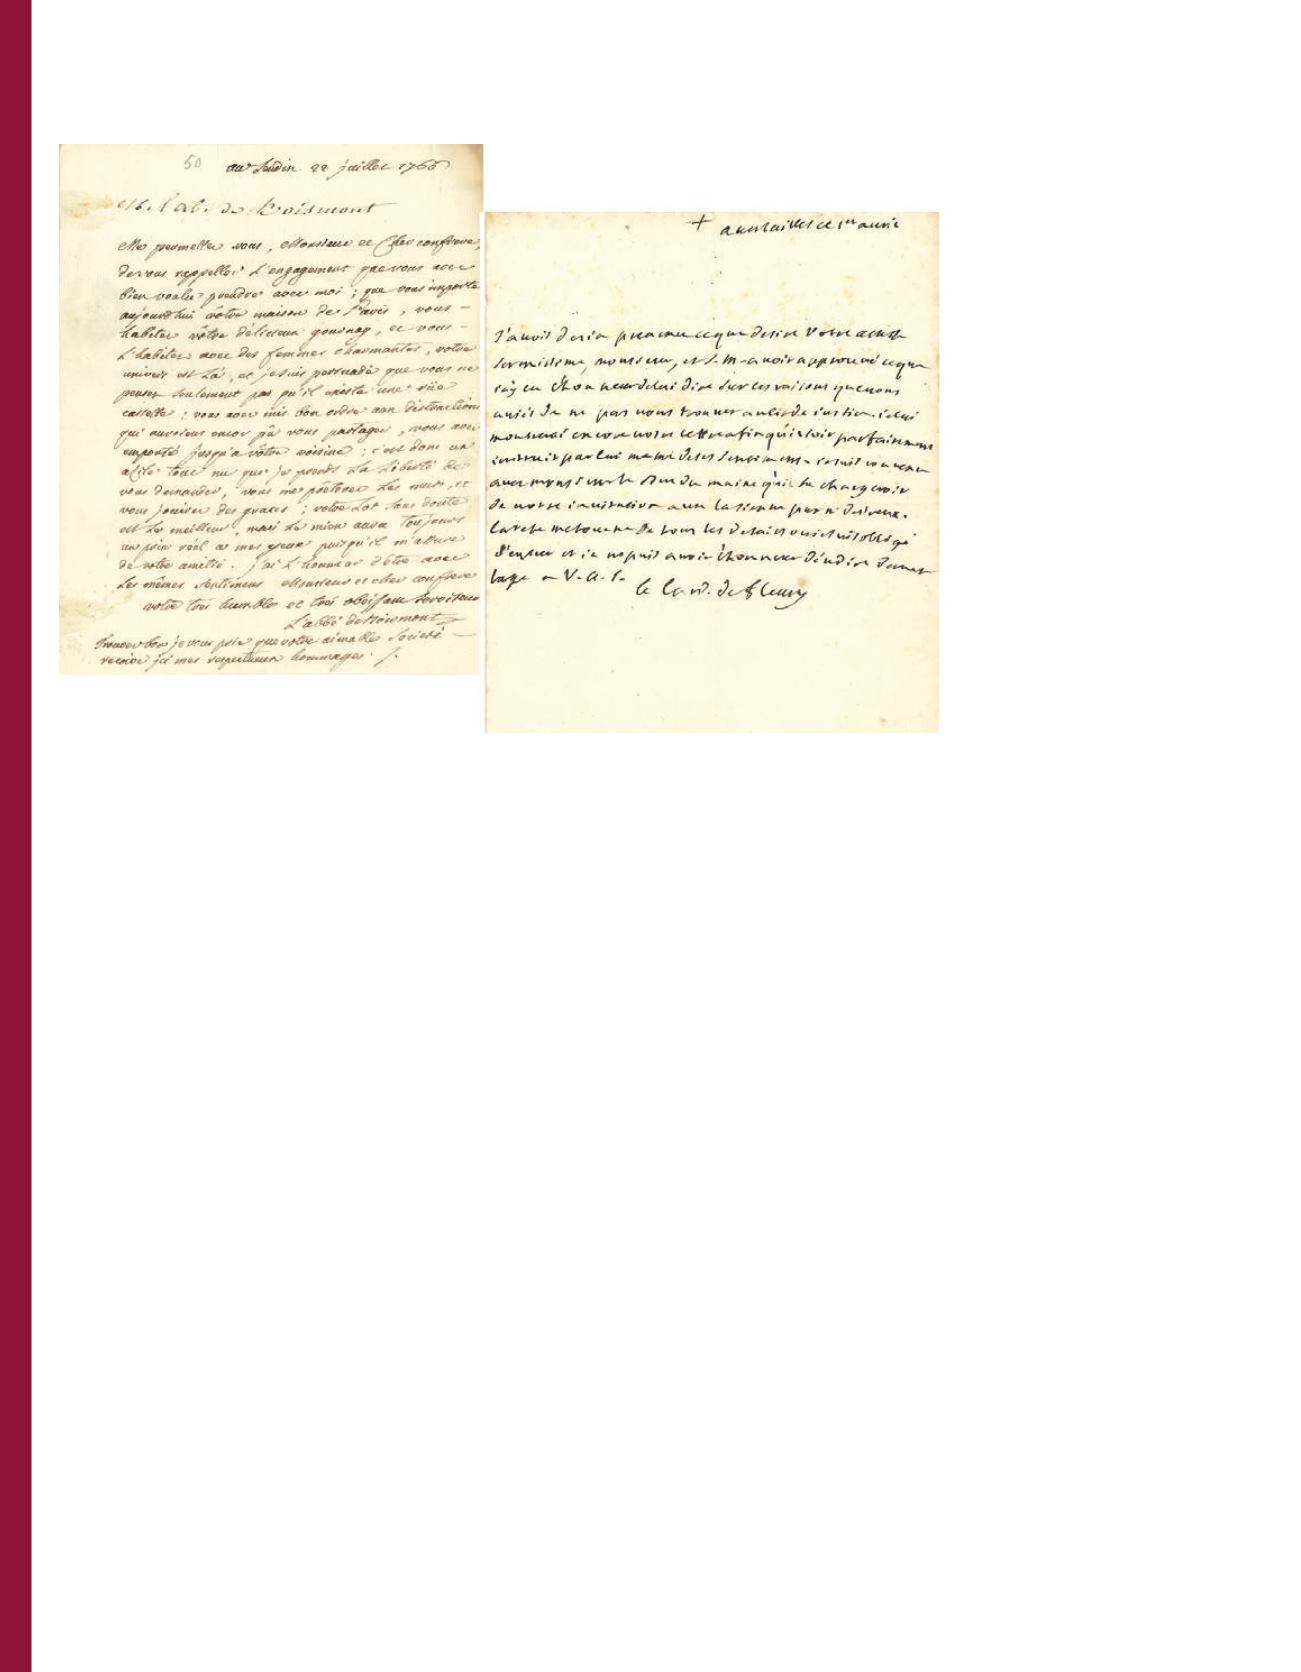 50 au Landin 22 juillet 1766
M. l'ab. de Boismont
Me permettez vous, Monsieur et Cher confrere,
de vous rappeller L'engagement que vous avez
bien voulu prendre avec moi ; que vous importe
aujourd'hui vôtre maison de Paris, vous
habitez vôtre délicieux gournay, et vous
L'habitez avec des femmes charmantes, votre
univers est Là, et je suis persuadé que vous ne
pensez seulement pas qu'il existe une rüe
; vous avez mis bon ordre aux distractions
qui auroient encor pû vous partager, vous avez
emporté jusqu'a vôtre voisine ; c'est donc un
asile tout nu que je prends La Liberté de
vous demander, vous me prêterez Les murs, et
vous jouirez des graces ; votre Lot sans doute
est Le meilleur, mais Le mien aura toujours
un prix réel a mes yeux puisqu'il m'assure
de votre amitié. j'ai L'honneur d'être avec
Les mêmes sentimens Monsieur et cher confrere
votre tres humble et tres obeissant serviteur
L'abbé de Boismont
Trouvez bon je vous prie que votre aimable Societé
recoive ici mes respectueux hommages ./.
+ a versailles ce 1er
J'avois desia prevenu ce que desire Votre altesse
serenissime, monsieur, et S. M. avoir approuvé ce que
j'ay eu l'honneur de lui dire sur les raisons que vous
aviés de ne pas vous trouver au lit de justice. ie lui
monstrerai encore vostre lettre afin qu'il soit parfaitement
instruit par lui mesme de ses sentimens. i'estois convenu
avec monsieur le Duc du maine qu'il se chargeroit
de vostre invitation avec la sienne
la reste de tous les details ou ie suis obligé
d'entrer et ie ne puis avoir l'honneur d'en dire davan
tage a V. A. S.
le Card. de fleury